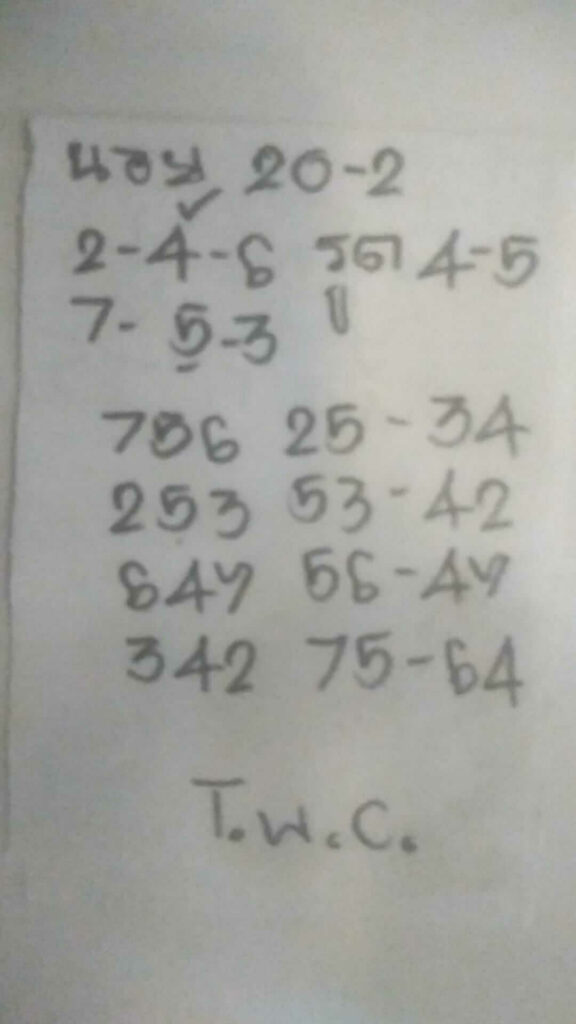 นอย 20-2
2-4-6 รูด 4-5
7-5-3
756 25-34
253 53-42
647 56-47
342 75-64
T.W.C.